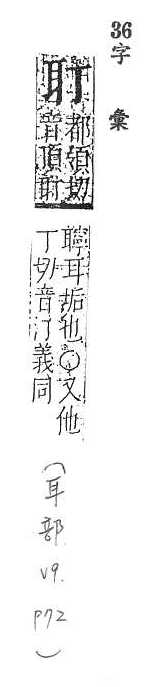 36字彙
耵
都領切
音頂耵
聹耳垢也○又他
丁切音汀義同
(耳部
v9.
p72)